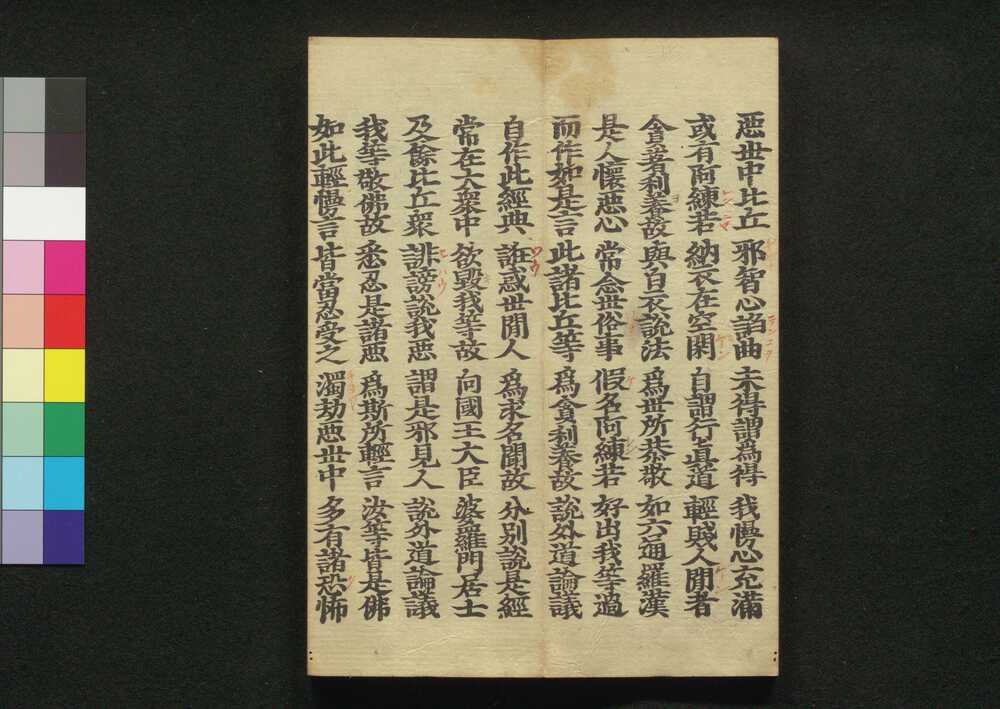 惡世中比丘 邪智心諂曲 未得謂爲得 我慢心充滿
或有阿練若 納衣在空閑 自謂行眞道 輕賤人間者
貪著利養故 與白衣說法 爲世所恭敬 如六通羅漢
是人懷惡心 常念世俗事 假名阿練若 好出我等過
而作如是言 此諸比丘等 爲貪利養故 說外道論議
自作此經典 誑惑世間人 爲求名聞故 分別說是經
常在大衆中 欲毀我等故 向國王大臣 婆羅門居士
及餘比丘衆 誹謗說我惡 謂是邪見人 說外道論議
我等敬佛故 悉忍是諸惡 爲斯所輕言 汝等皆是佛
如此輕慢言 皆當忍受之 濁劫惡世中 多有諸恐怖